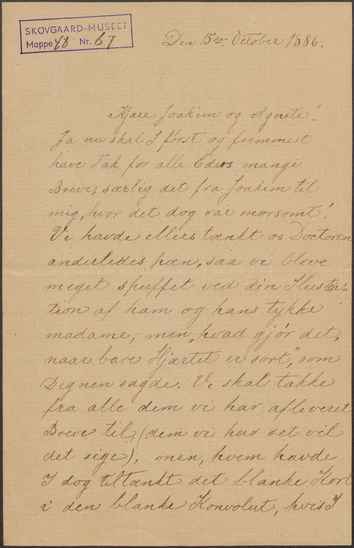 SKOVGAARD-MUSEET
Mappe 48 Nr. 67
Den 5te October 1886.
Kjære Joakim og Agnete!
Ja nu skal I først og fremmest
have Tak for alle Eders mange
Breve, særlig det fra Joakim til
mig, hvor det dog var morsomt!
Vi havde ellers tænkt os Doctoren
anderledes pæn, saa vi bleve
meget skuffet ved din Illustra-
tion af ham og hans tykke
madame, men, "hvad gjør det,
naar bare Hjærtet er sort", som
Degnen sagde. Vi skal takke
fra alle dem vi har afleveret
Breve til, (dem vi har set vil
det sige), men, hvem havde
I dog tiltænkt det blanke Kort
i den blanke Konvolut, hvis I